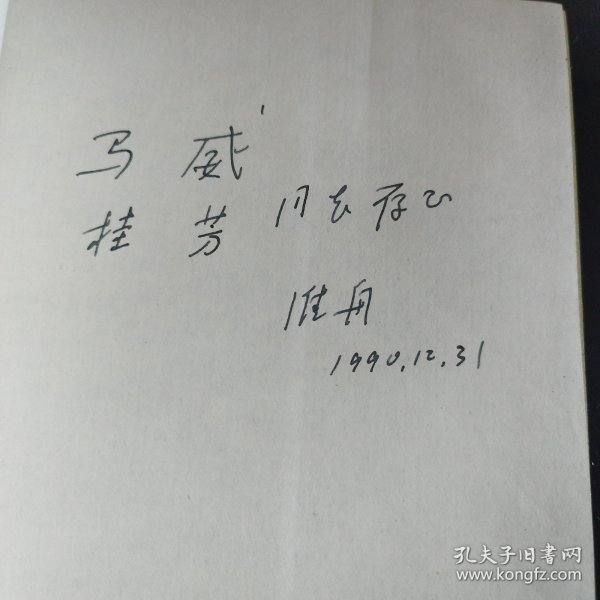 马 威
桂 芳 同志存正
淮舟
1990.12.31
孔夫子旧书网
www.kongfz.com